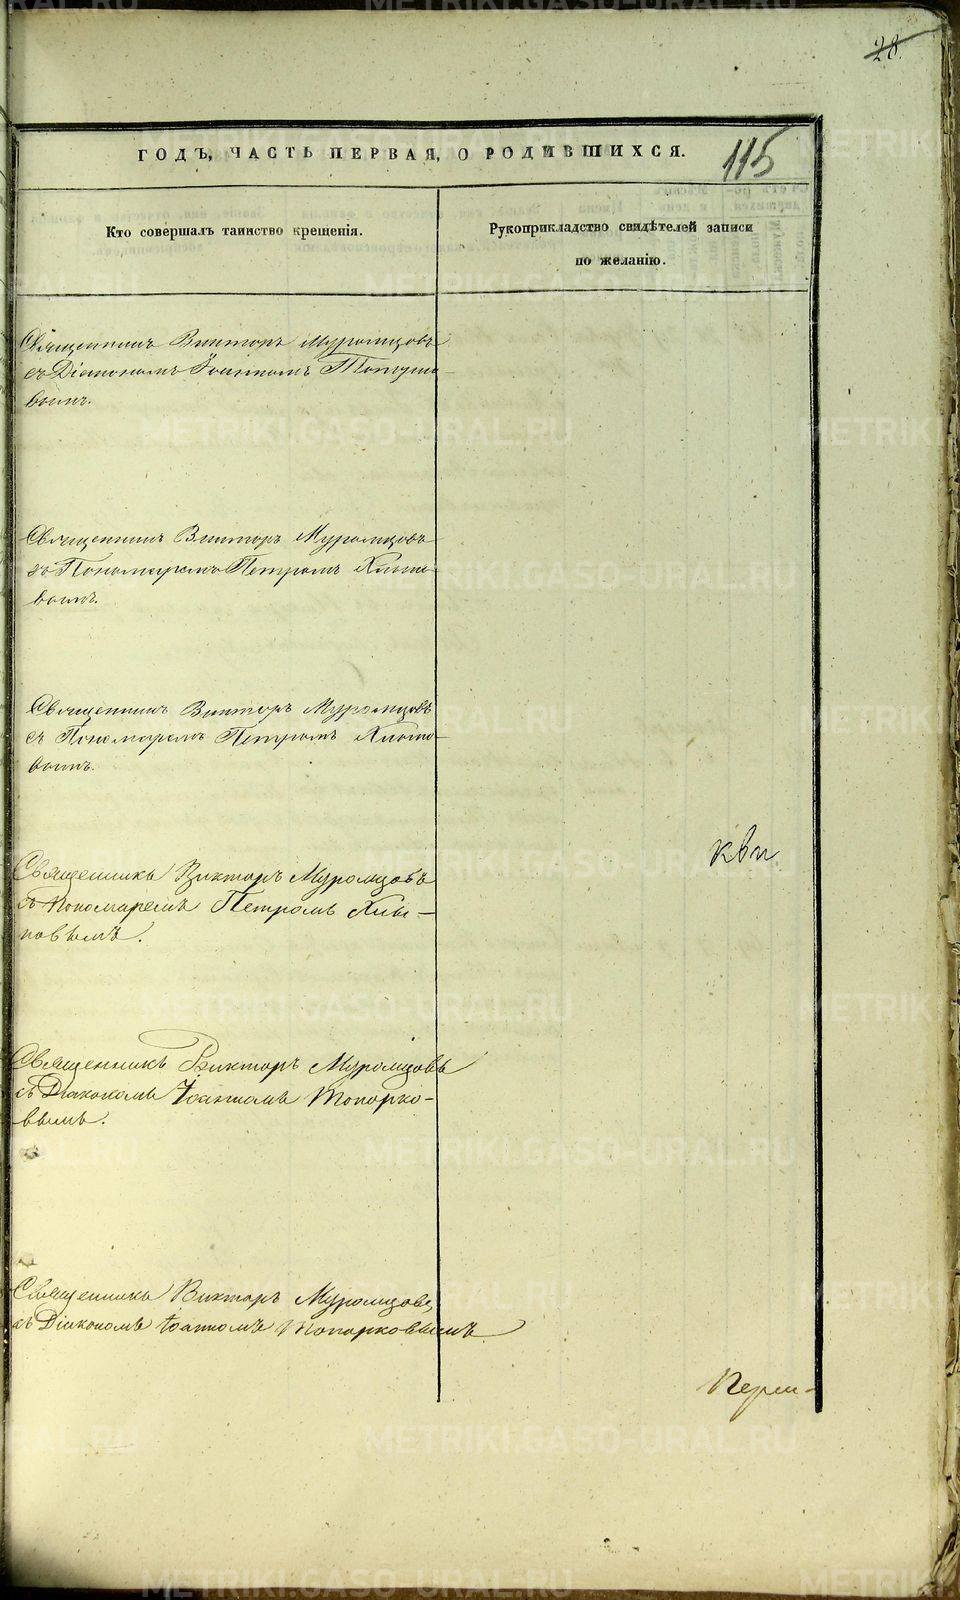 28.
ГОДЪ, ЧАСТЬ ПЕРВАЯ, О РОДИВШИХСЯ.
115
Кто совершалъ таинство крещенія.
Рукоприкладство свидѣтелей записи
по желанію.
Священникъ Викторъ Муромцовъ
съ Діакономъ Іоанномъ Топорко-
вымъ.
Священникъ Викторъ Муромцовъ
съ Пономаремъ Петромъ Хлыно-
вымъ.
Священникъ Викторъ Муромцовъ
съ Пономаремъ Петромъ Хлыно-
вымъ.
Священникъ Викторъ Муромцовъ
съ Пономаремъ Петромъ Хлы-
новымъ.
Священникъ Викторъ Муромцовъ
съ Діакономъ Іоанномъ Топорко-
вымъ.
Священникъ Викторъ Муромцовъ
съ Діакономъ Іоанномъ Топорковымъ
Перм-
METRIKI.GASO-URAL.RU